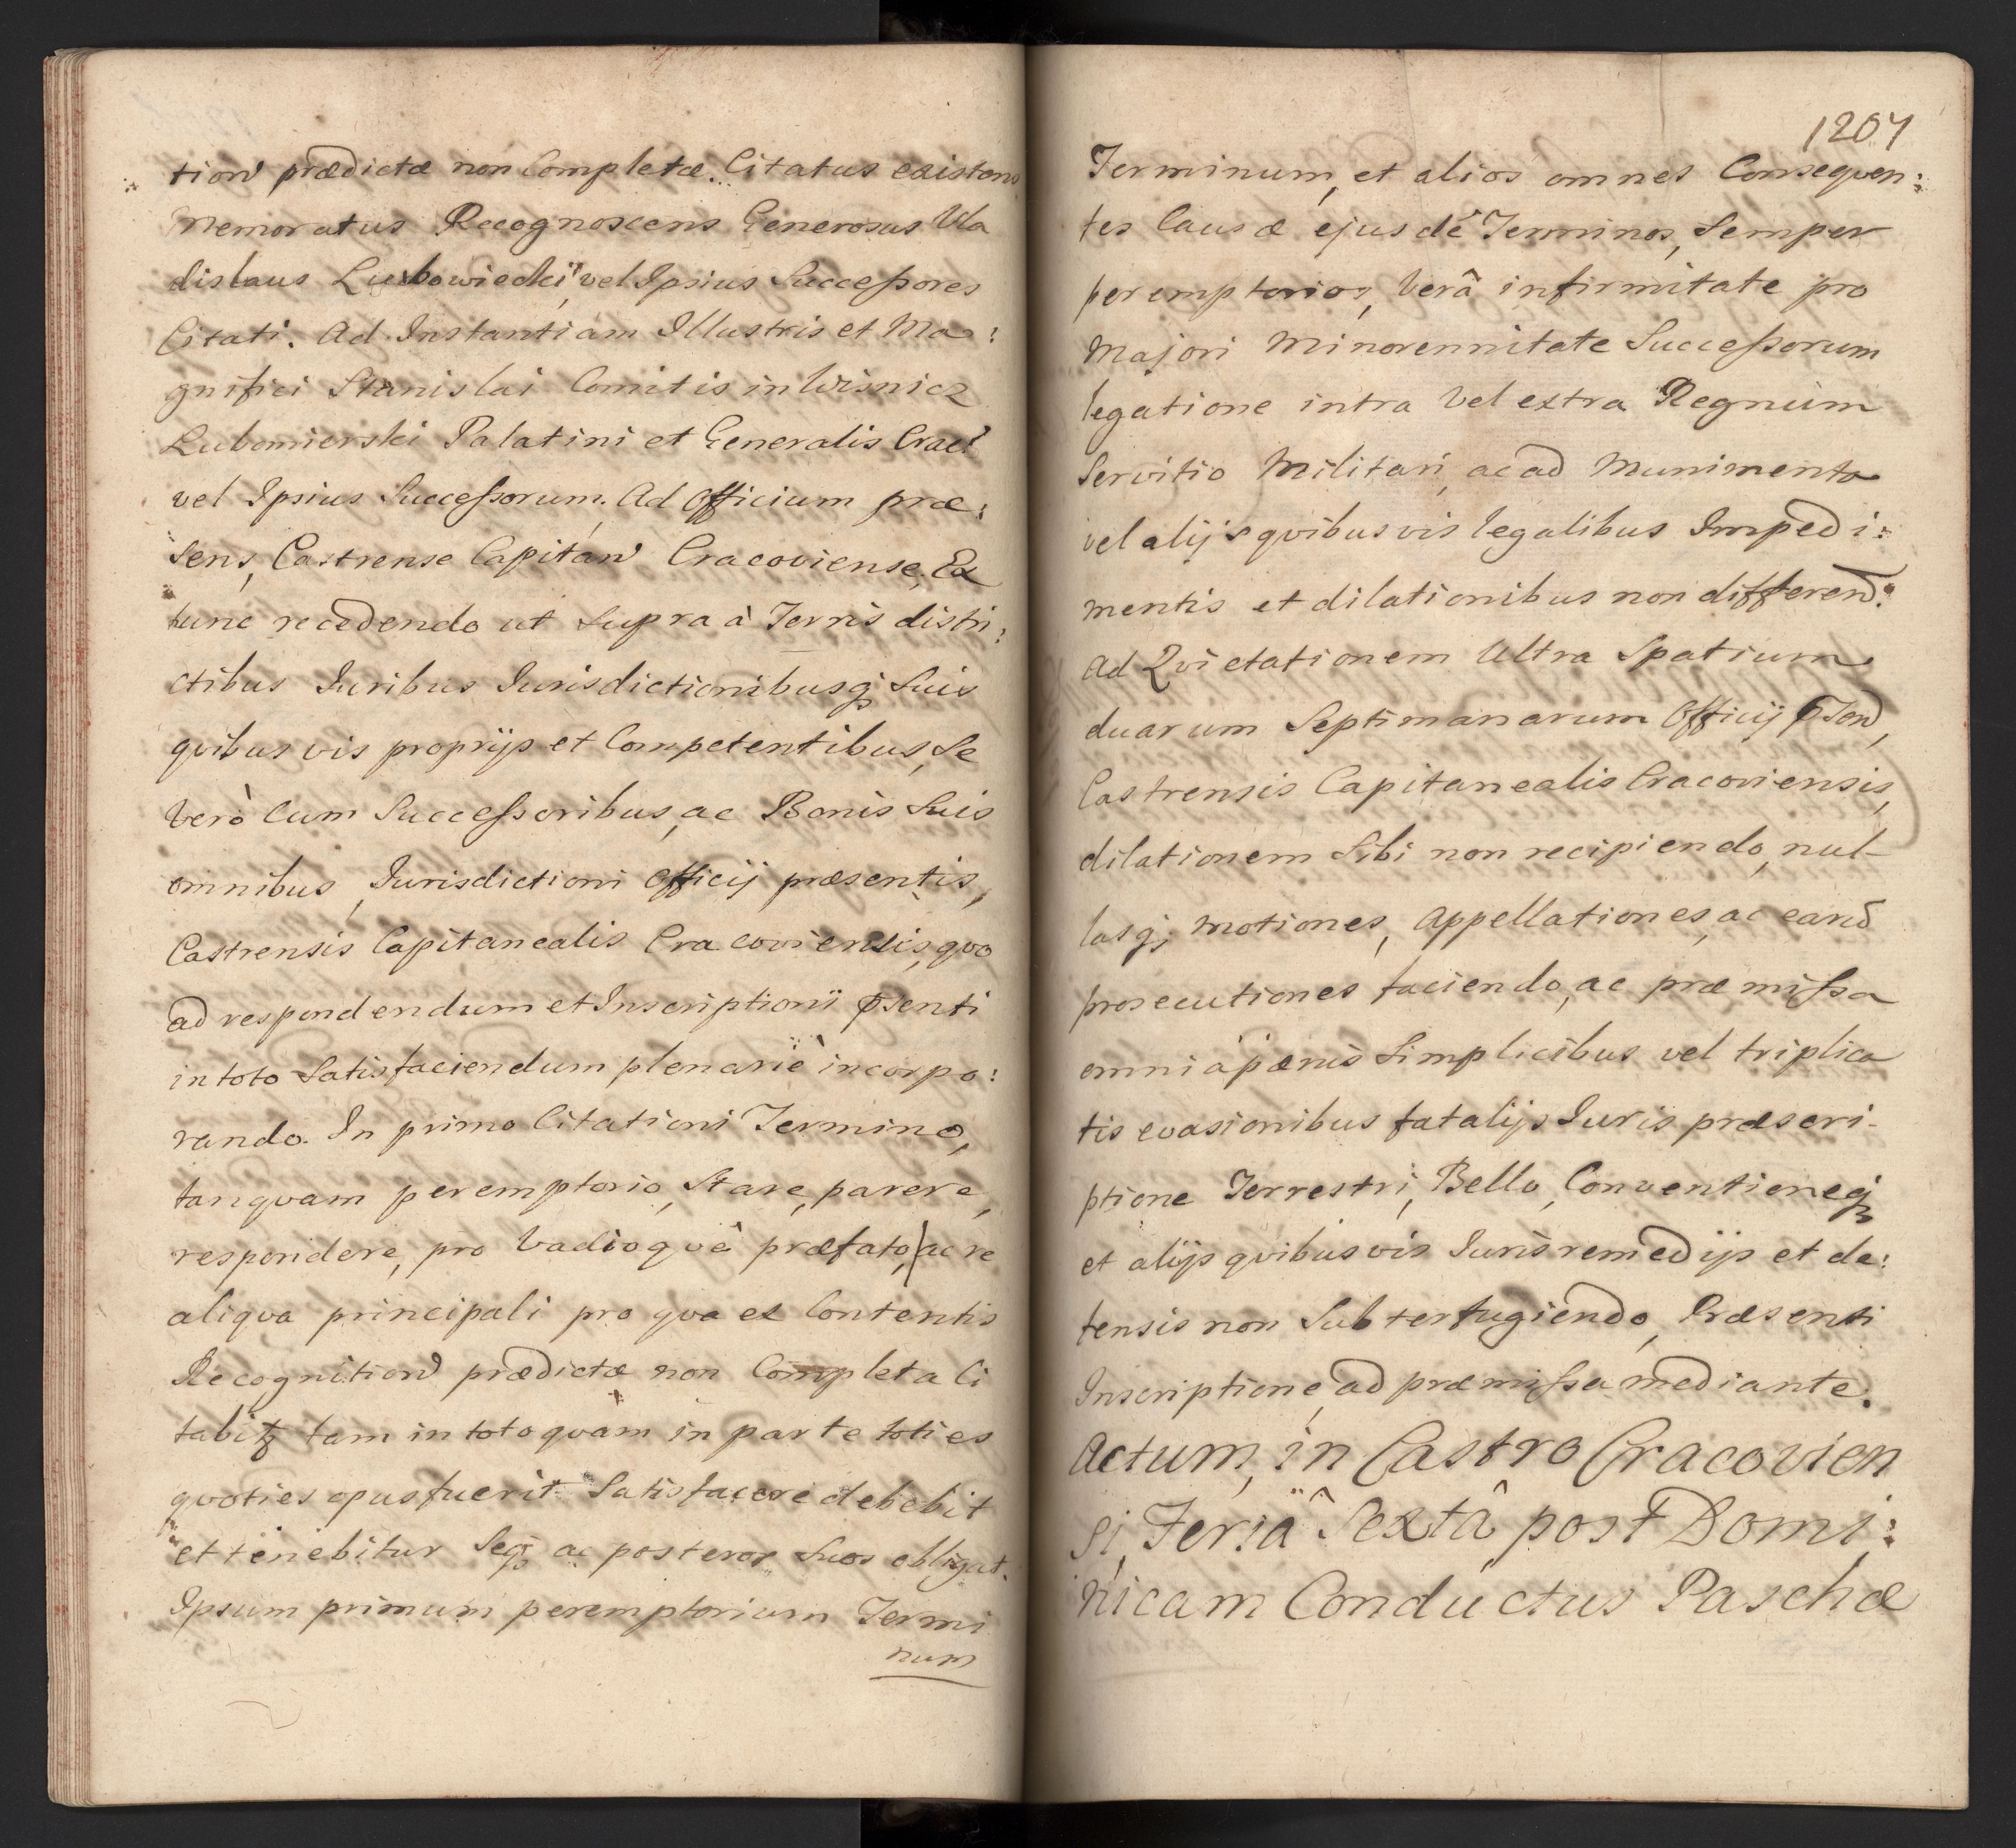 tion prædictæ non Completæ. Citatus existens
Memoratus Recognoscens Generosus Vla
dislaus Luxbowiecki, vel Ipsius Successores
Citati. Ad Instantiam Illustris et Ma:
gnifici Stanislai Comitis in Wisnicz
Lubomierski Palatini et Generalis Crac:
vel Ipsius Successorum. Ad Officium præ:
sens, Castrense Capitan Cracoviense, Ex
tunc recedendo ut supra à Terris distri:
ctibus Iuribus Iurisdictionibusq; Suis
qvibus vis proprijs et Competentibus, Se
Verò Cum Successoribus, ac Bonis Suis
omnibus, Iurisdictioni Officij præsentis,
Castrensis Capitanealis Cracoviensis, qvo
ad respondendum et Inscriptioni p̄senti
in toto Satisfaciendum plenariè incorpo:
rando. In primo Citationi Termino,
tanqvam peremptorio, Stare, parere,
respondere, pro Vadio qvè præfato, ac re
aliqva principali pro qva ex Contentis
Recognition prædictæ non Completa Ci
tabitꝫ tam in toto qvàm in parte toties
qvoties opus fuerit Satisfacere debebit
et tenebitur Seqꝫ ac posteros Suos obligat.
Ipsum primum peremptorium Termi
num
1207
Terminum, et alios omnes Conseqven:
tes Causæ ejusdē Terminos, Semper
peremptorios, Verâ infirmitate pro
Majori Minorennitate Successorum
legatione intra Vel extra Regnum
Servitio Militari, ac ad Munimenta
vel alijs qvibusvis legalibus Impedi:
mentis et dilationibus non differend:
Ad Qvietationem Ultra Spatium
duarum Septimanarum Officij p̄sen,
Castrensis Capitanealis Cracoviensis,
dilationem Sibi non recipiendo, nul-
lasq; Motiones, Appellationes, ac eand
prosecutiones faciendo, ac præmissa
omnia pænis Simplicibus vel triplica
tis evasionibus fatalijs Iuris præscri-
ptione Terrestri, Bello, Conventioneqꝫ
et alijs qvibusvis Iuris remedijs et de:
fensis non Subterfugiendo, Præsenti
Inscriptione, ad præmissa mediante.
Actum, in Castro Cracovien
si, Feriâ Sextâ post Domi:
nicam Conductus Paschæ